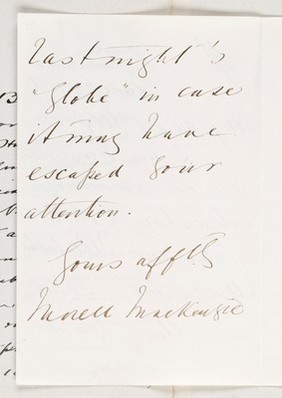 last night's
"Globe" in case
it may have
escaped your
attention.
Yours afftly
Morell Mackenzie